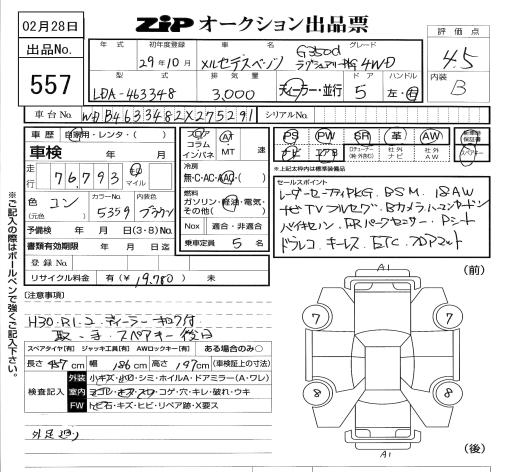 02月28日
ZIP オークション出品票
出品No.
557
年式 初年度登録 車名 グレード
29年10月 メルセデスベンツ G350d ラグジュアリーPKG 4WD
評価点
4.5
内装
B
型式 排気量 ドア ハンドル
LDA-463348 3,000 ディーラー・並行 5 左・右
車台No. WDB4633482X275291 シリアルNo.
車歴 自家用・レンタ・( )
車検 年 月
走行 76,793 km マイル
色 コン (元色) カラーNo. 5359 内装色 ブラウン
予備検 年 月 日(3・8)No.
書類有効期限 年 月 日迄
登録No.
リサイクル料金 有(¥ 19,780 )
フロア コラム インパネ AT MT 速
冷房
無・C・AC・AAC・( )
燃料
ガソリン・軽油・電気・その他( )
Nox 適合・非適合
乗車定員 5 名
PS PW SR 革 AW
ナビ エアB 社外ナビ 社外AW スペアキー
※上記太枠は標準装備品
セールスポイント
レーダーセーフティPKG. BSM. 18AW
ナビTVフルセグ. Bカメラ ハーマンカードン
バイキセノン. FRパークセンサー. Pシート
ドラレコ. キーレス. ETC. フロアマット
※ご記入の際はボールペンで強くご記入下さい。
[注意事項]
H30.R1.2 ディーラー記録付
取.手.スペアキー後日
スペアタイヤ[有] ジャッキ工具[有] AWロックキー[有] ある場合のみ○
長さ 457 cm 幅 186 cm 高さ 197 cm (車検証上の寸法)
検査記入
外装 小キズ・凹・シミ・ホイルA・ドアミラー(A・ワレ)
室内 ヨゴレ・キズ・スレ・コゲ・穴・キレ・破れ・ウキ
FW トビ石・キズ・ヒビ・リペア跡・X要ス
(前)
A1
7 7
8 8
A1
(後)